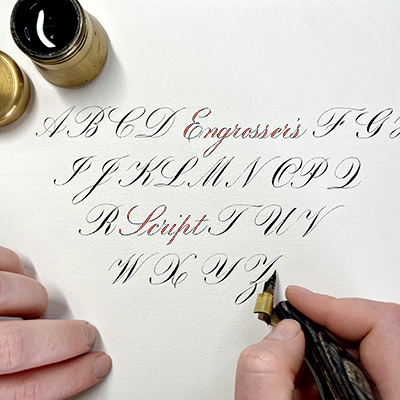 A B C D Engrosser's F G
I J K L M N O P Q
R Script T U V
W X Y Z